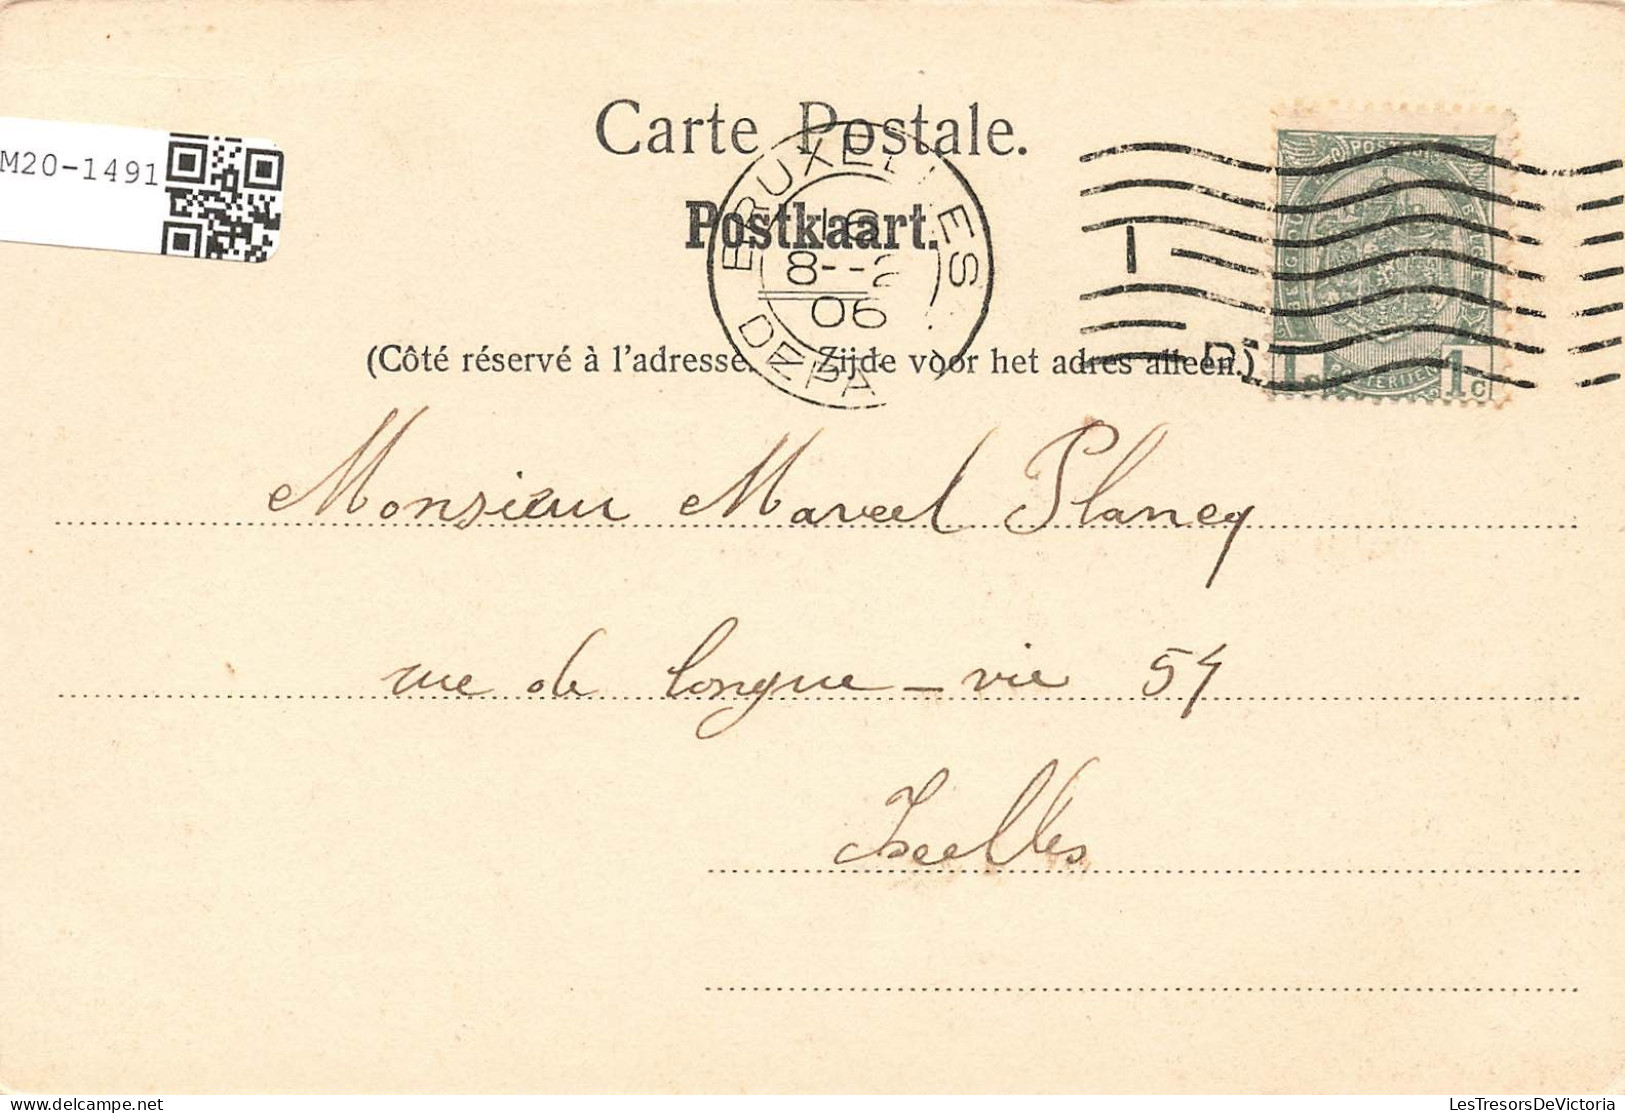 Carte Postale.
M20-1491
Postkaart.
BRUXELLES
10
8
06
DEPA
POSTERIJEN
1c
(Côté réservé à l'adresse. Zijde voor het adres alleen.)
Monsieur Marcel Plancq
rue de longue-vie 54
Ixelles
delcampe.net
LesTresorsDeVictoria